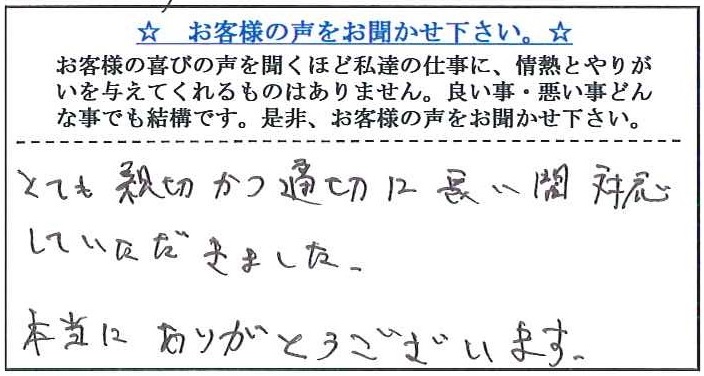 ☆ お客様の声をお聞かせ下さい。☆
お客様の喜びの声を聞くほど私達の仕事に、情熱とやりが
いを与えてくれるものはありません。良い事・悪い事どん
な事でも結構です。是非、お客様の声をお聞かせ下さい。
とても親切かつ適切に長い間対応
していただきました。
本当にありがとうございます。